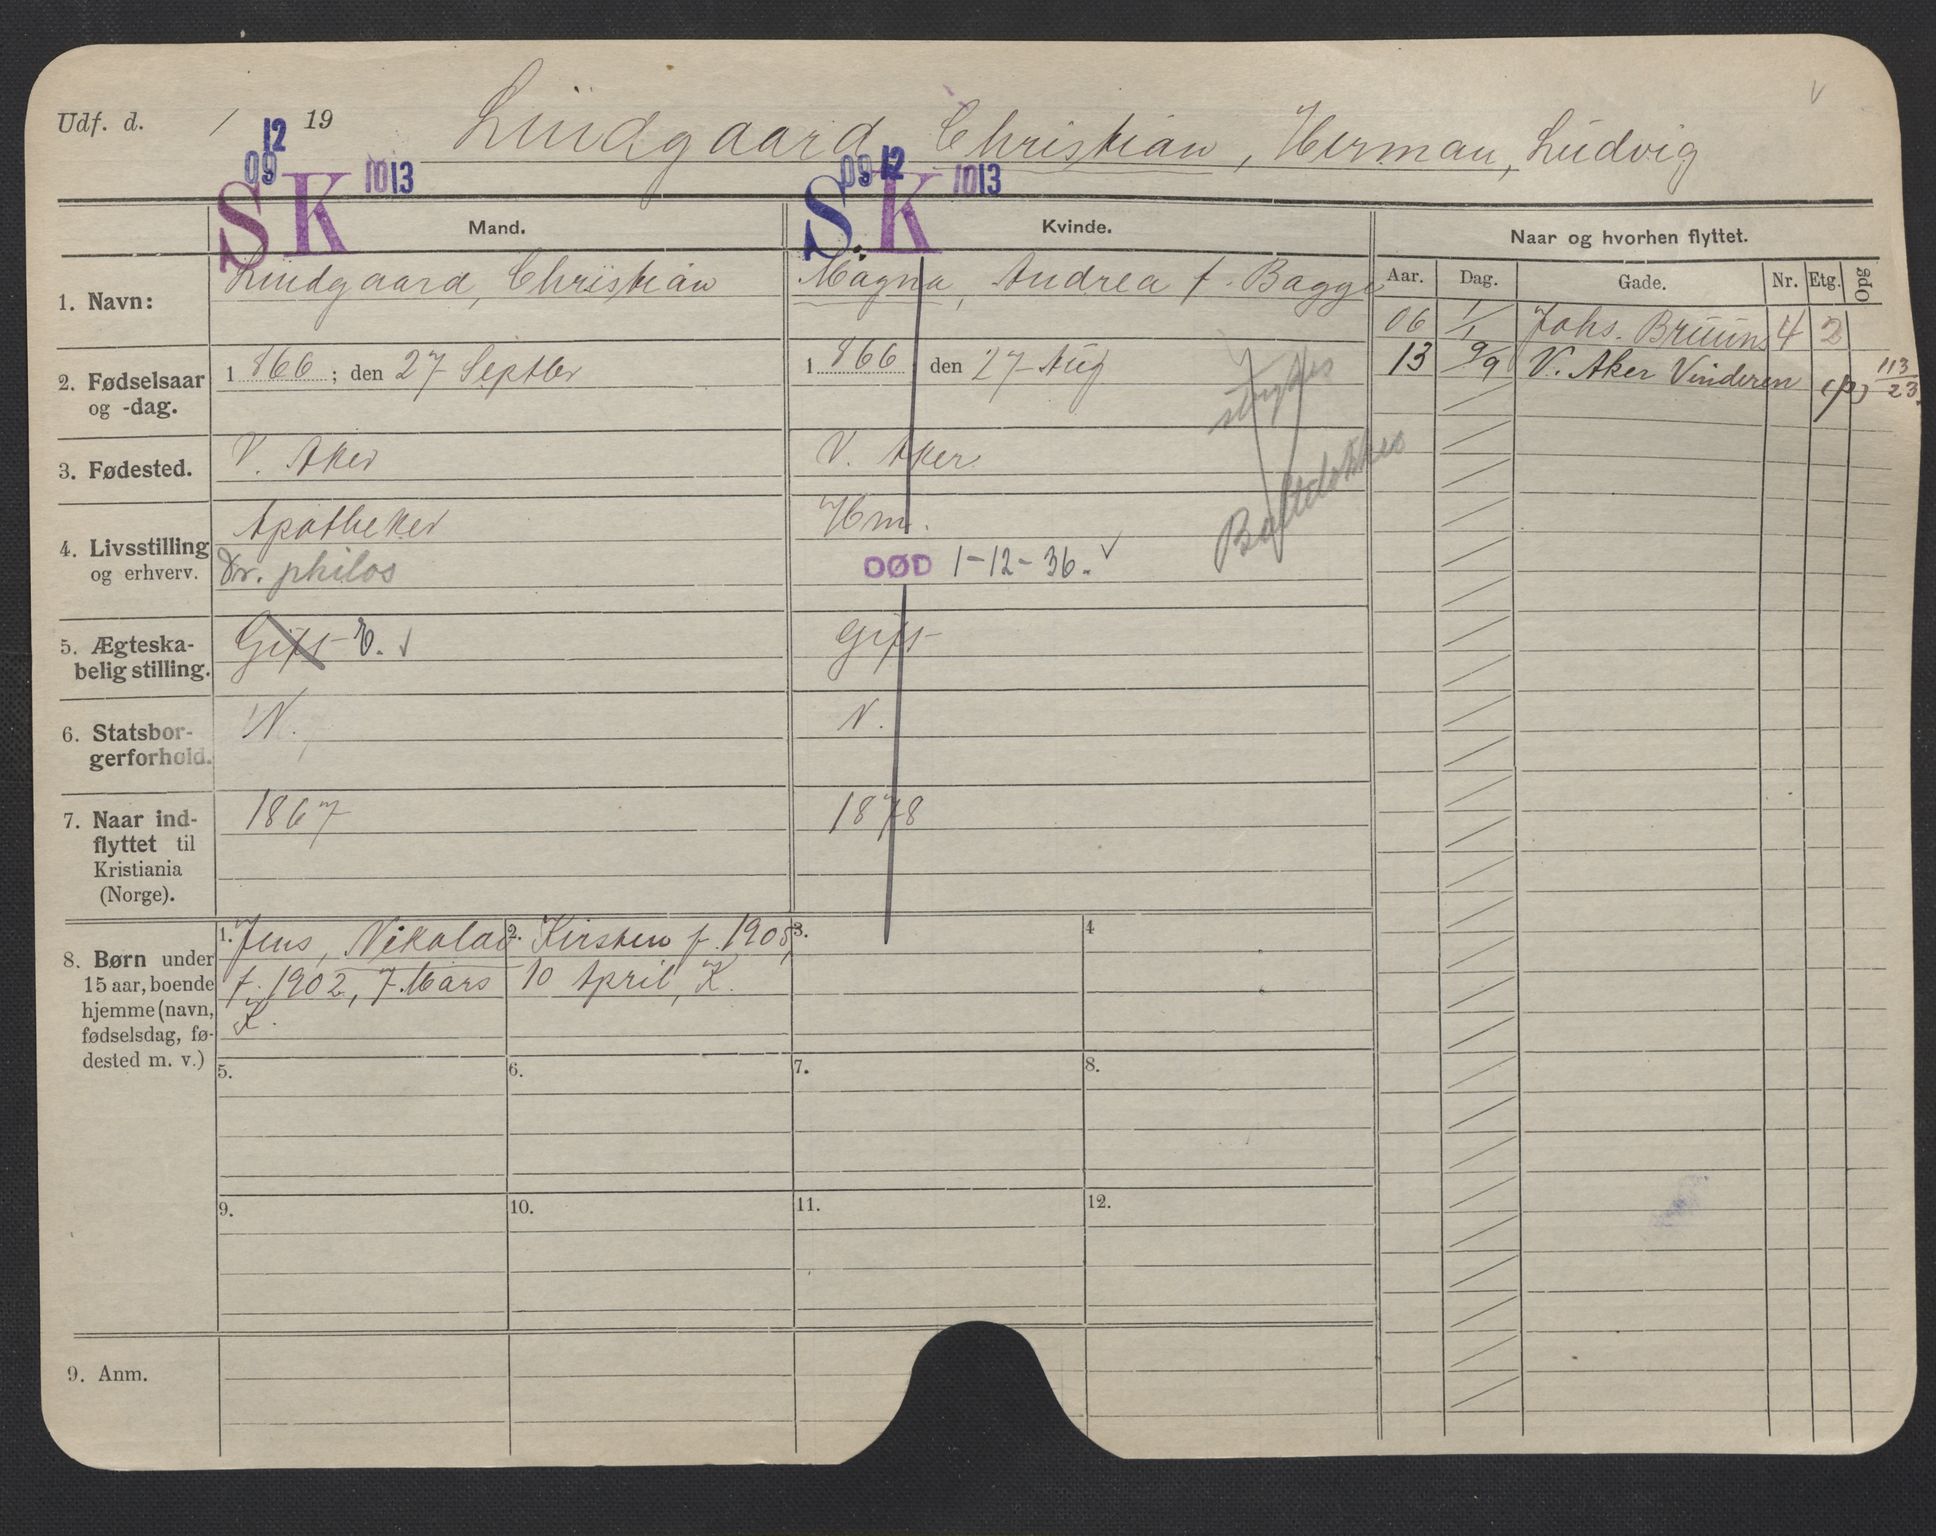 Udf. d. / 19 Lindgaard, Christian, Herman, Ludvig
12 12
09 S K 1013 09 S. K 1013
Mand. Kvinde. Naar og hvorhen flyttet.
Aar. Dag. Gade. Nr. Etg. Opg
1. Navn: Lindgaard, Christian Magna, Andrea f. Bagge
06 1/1 Johs. Bruuns 4 2
13 9/9 V. Aker Vinderen (p) 113/23.
2. Fødselsaar og -dag. 1866; den 27 Septbr 1866, den 27 Aug
strykes
3. Fødested. V. Aker V. Aker
4. Livsstilling og erhverv. Apotheker Hm.
Dr. philos DØD 1-12-36. v
5. Ægteska-
belig stilling. Gift E. v gift
6. Statsbor-
gerforhold. N. N.
7. Naar ind-
flyttet til
Kristiania
(Norge). 1867 1878
8. Børn under
15 aar, boende
hjemme (navn,
fødselsdag, fø-
dested m. v.)
1. Jens, Nikolai
f. 1902, 7 Mars
K.
2. Kirsten f. 1905,
10 April, K.
3. 4
5. 6. 7. 8.
9. 10. 11. 12.
9. Anm.